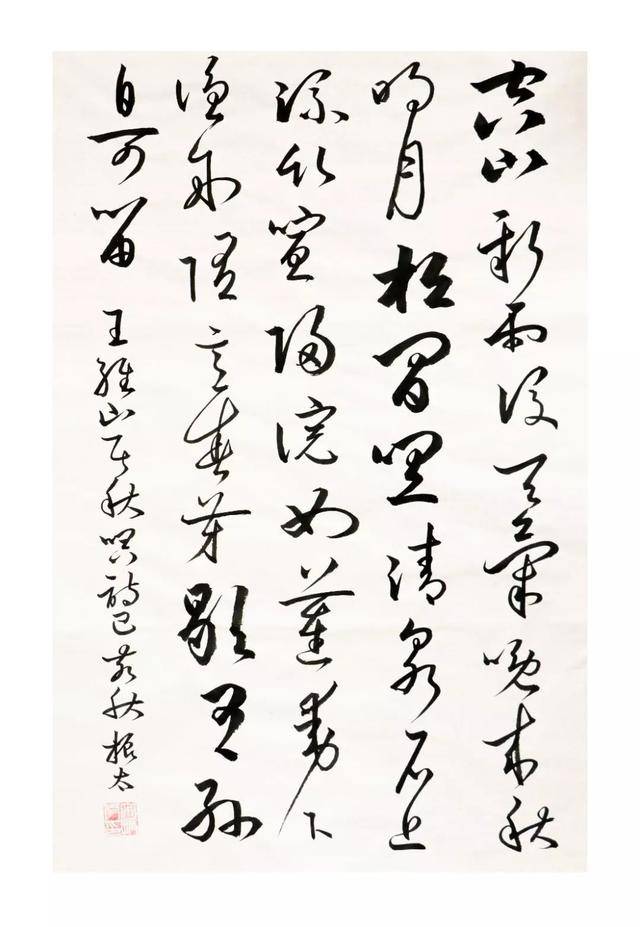 空山新雨後天氣晚來秋
明月松間照清泉石上
流竹喧歸浣女蓮動下
漁舟隨意春芳歇王孫
自可留 王維山居秋暝詩己亥秋振太